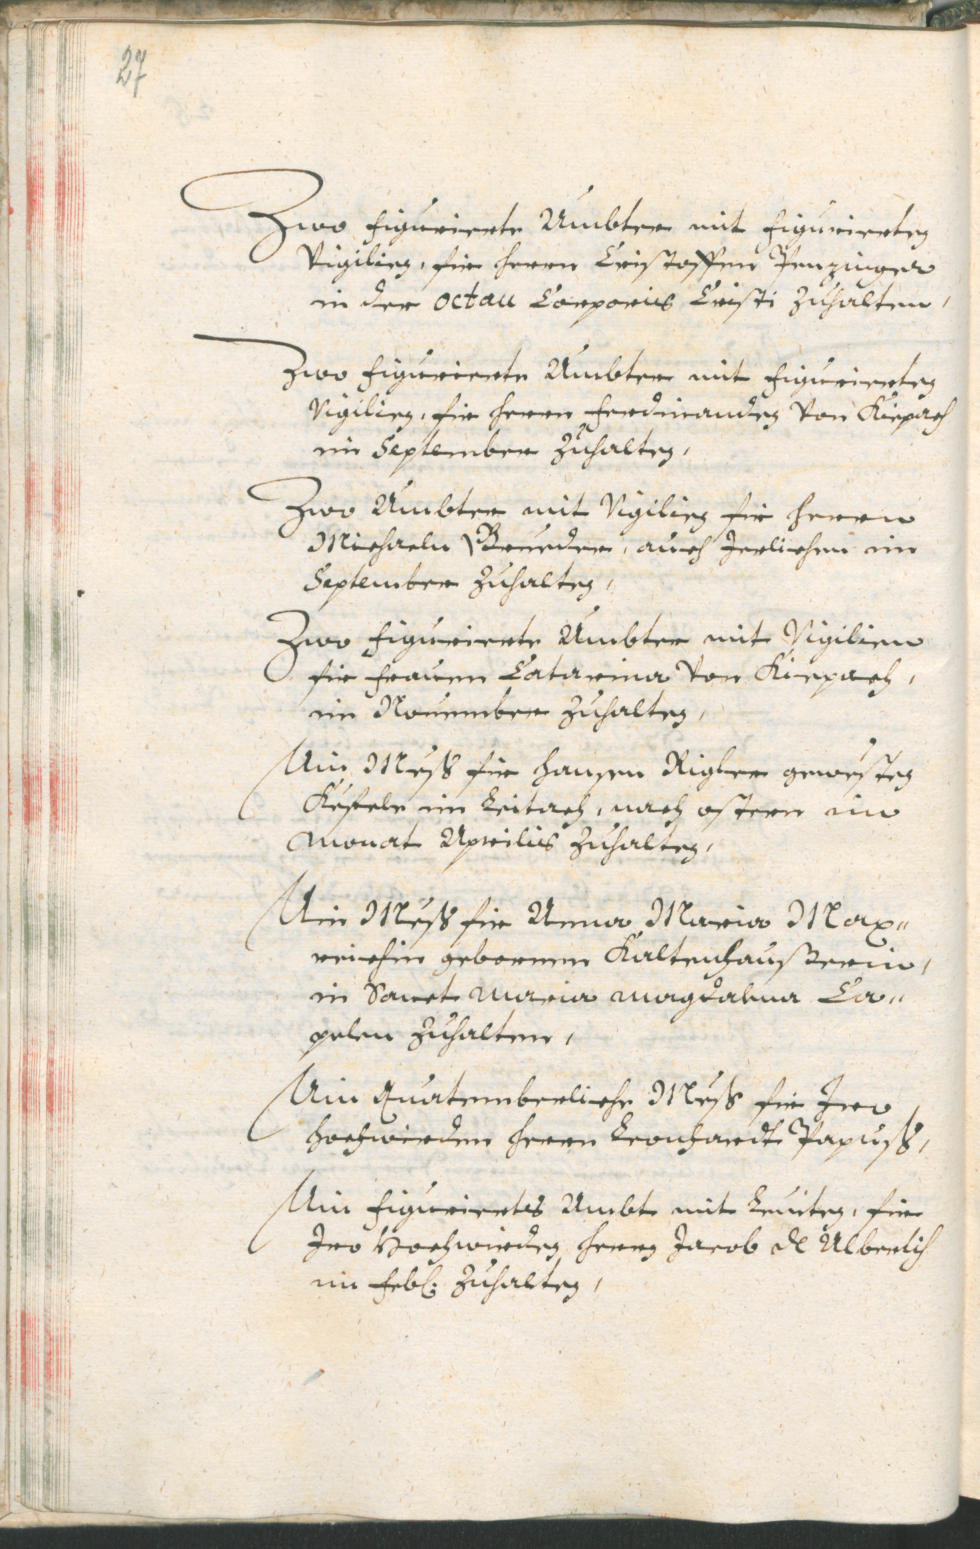 27
Zwo figurierte Ambter mit figurierten
Vigilien, fir herrn Cristoffen Jenzinger
in der octau Corporis Cristi zuhalten,
Zwo figurierte Ambter mit figurierten
Vigilien, fir herrn Ferdinanden von Kiepach
im September zuhalten,
Zwo Ambter mit Vigilien fir herrn
Michaeln Brueder, auch Jerlichen im
September zuhalten,
Zwo figurierte Ambter mit Vigilien
fir frauen Catarina von Kiepach,
im Nouember zuhalten,
Ain Meß fir hansen Rigler gewesten
im Leitach, nach ostern im
monat Aprilis zuhalten,
Ain Meß fir Anna Maria Max„
reichin geborne Kaltenhauserin,
in Sanct maria magdalena Ca„
pelen zuhalten,
Ain Quatemberliche Meß fir Iro
hochwirden herrn Leonhardt Papuß,
Ain figuriertes Ambt mit Leuiten, fir
Iro Hochwirden herrn Jacob de Alberli
im feb: zuhalten,